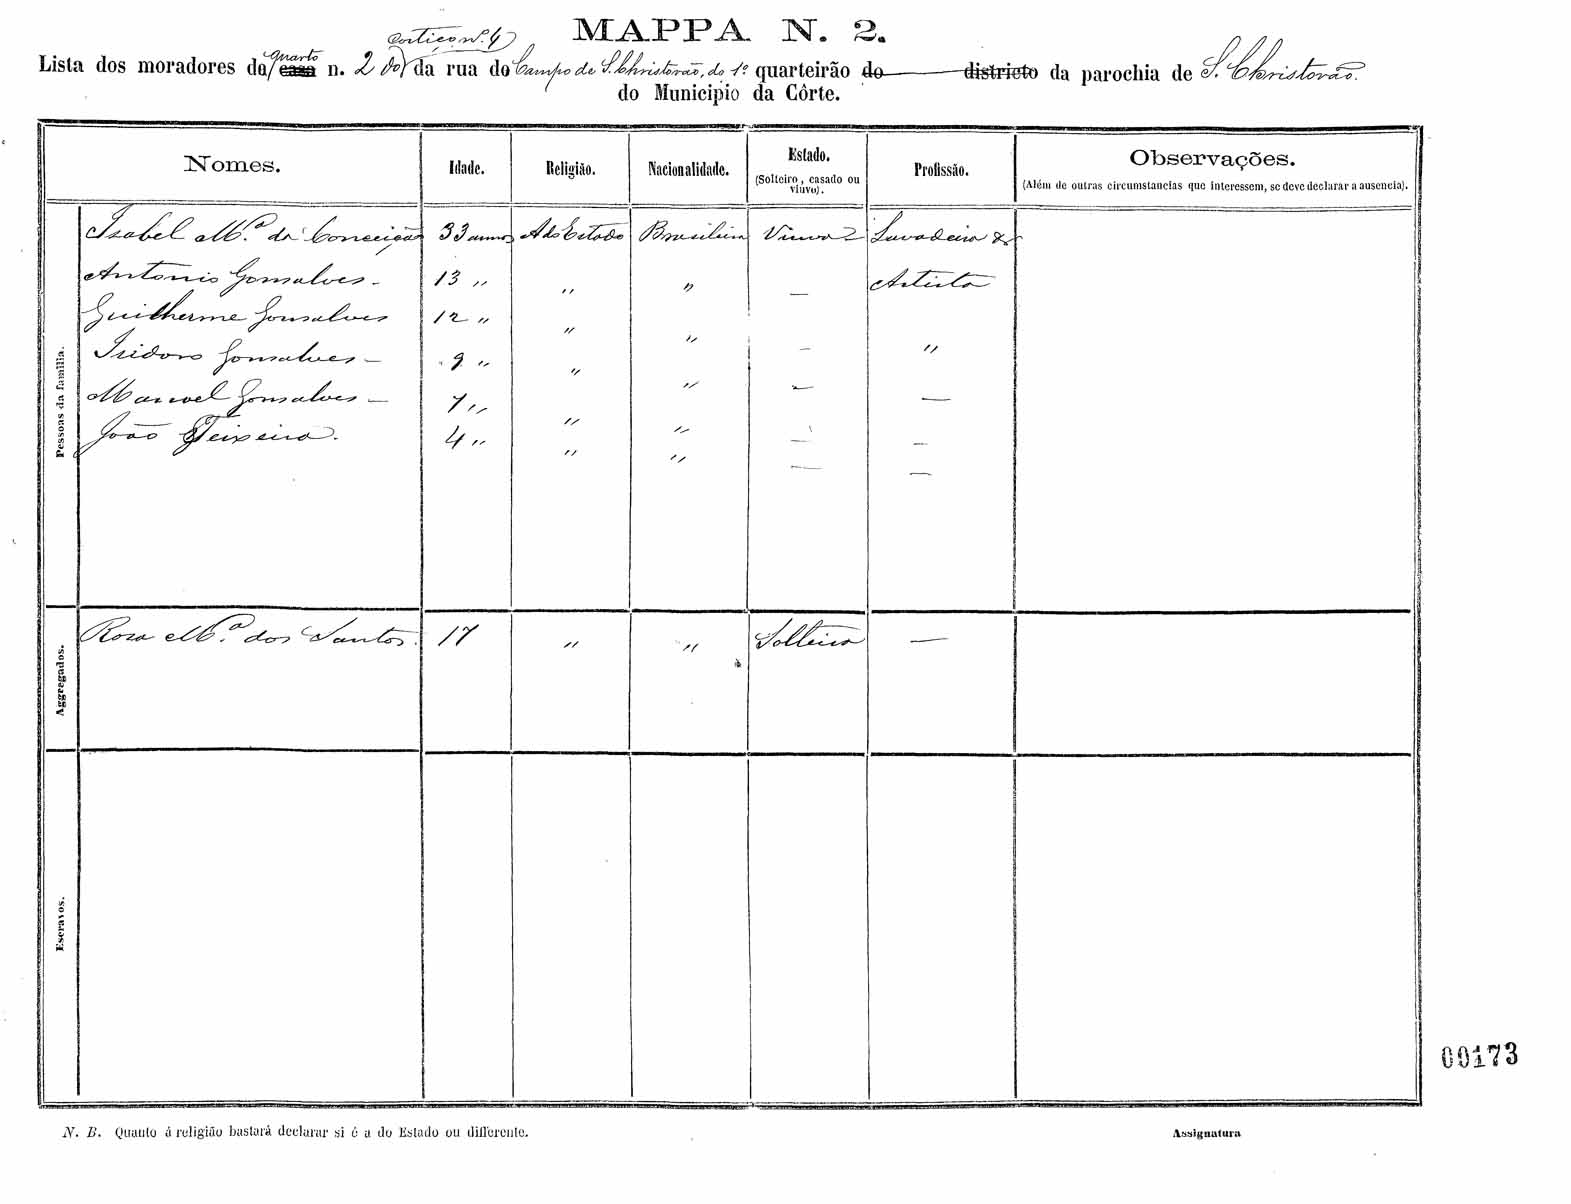 MAPPA N. 2.
Cortiço nº. 4
quarto
Lista dos moradores da casa n. 2 do da rua do Campo de S. Christovão, do 1º quarteirão do districto da parochia de S. Christovão.
do Municipio da Côrte.
Nomes. Idade. Religião. Nacionalidade. Estado. (Solteiro, casado ou viuvo). Profissão. Observações. (Além de outras circumstancias que interessem, se deve declarar a ausencia).
Pessoas da familia.
Isabel M.ª da Conceição 33 annos A do Estado Brasileira Viuva Lavadeira &
Antonio Gonsalves - 13 " " " — Artista
Guilherme Gonsalves 12 " " " — "
Isidoro Gonsalves - 9 " " " — —
Manoel Gonsalves - 7 " " " — —
João Teixeira. 4 " " " — —
Aggregados.
Rosa M.ª dos Santos. 17 " " Solteira —
Escravos.
00173
N. B. Quanto á religião bastará declarar si é a do Estado ou differente.
Assignatura